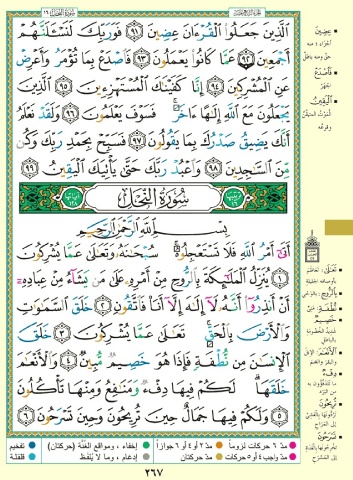 سُورَةُ الحِجْر ١٥
الجزء الرابع عشر ١٤
الَّذِينَ جَعَلُوا الْقُرْءَانَ عِضِينَ ٩١ فَوَرَبِّكَ لَنَسْـَٔلَنَّهُمْ
أَجْمَعِينَ ٩٢ عَمَّا كَانُوا يَعْمَلُونَ ٩٣ فَاصْدَعْ بِمَا تُؤْمَرُ وَأَعْرِضْ
عَنِ الْمُشْرِكِينَ ٩٤ إِنَّا كَفَيْنَٰكَ الْمُسْتَهْزِءِينَ ٩٥ الَّذِينَ
يَجْعَلُونَ مَعَ اللَّهِ إِلَٰهًا ءَاخَرَ فَسَوْفَ يَعْلَمُونَ ٩٦ وَلَقَدْ نَعْلَمُ
أَنَّكَ يَضِيقُ صَدْرُكَ بِمَا يَقُولُونَ ٩٧ فَسَبِّحْ بِحَمْدِ رَبِّكَ وَكُن
مِّنَ السَّٰجِدِينَ ٩٨ وَاعْبُدْ رَبَّكَ حَتَّىٰ يَأْتِيَكَ الْيَقِينُ ٩٩
سُورَةُ النَّحْلِ
بِسْمِ اللَّهِ الرَّحْمَٰنِ الرَّحِيمِ
أَتَىٰ أَمْرُ اللَّهِ فَلَا تَسْتَعْجِلُوهُ سُبْحَٰنَهُ وَتَعَٰلَىٰ عَمَّا يُشْرِكُونَ
١ يُنَزِّلُ الْمَلَٰئِكَةَ بِالرُّوحِ مِنْ أَمْرِهِ عَلَىٰ مَن يَشَاءُ مِنْ عِبَادِهِ
أَنْ أَنذِرُوا أَنَّهُ لَا إِلَٰهَ إِلَّا أَنَا فَاتَّقُونِ ٢ خَلَقَ السَّمَٰوَٰتِ
وَالْأَرْضَ بِالْحَقِّ تَعَٰلَىٰ عَمَّا يُشْرِكُونَ ٣ خَلَقَ
الْإِنسَٰنَ مِن نُّطْفَةٍ فَإِذَا هُوَ خَصِيمٌ مُّبِينٌ ٤ وَالْأَنْعَٰمَ
خَلَقَهَا لَكُمْ فِيهَا دِفْءٌ وَمَنَٰفِعُ وَمِنْهَا تَأْكُلُونَ
٥ وَلَكُمْ فِيهَا جَمَالٌ حِينَ تُرِيحُونَ وَحِينَ تَسْرَحُونَ ٦
عِضِينَ
فَاصْدَعْ
الْيَقِينُ
تَعَٰلَىٰ
بِالرُّوحِ
نُطْفَةٍ
خَصِيمٌ
دِفْءٌ
تُرِيحُونَ
تَسْرَحُونَ
مدّ ٦ حركات لزوماً مدّ ٢ أو ٤ أو ٦ جوازاً إخفاء، ومواقع الغنّة (حركتان) تفخيم
مدّ واجب ٤ أو ٥ حركات مدّ حركتان إدغام، وما لا يُلفظ قلقلة
٢٦٧